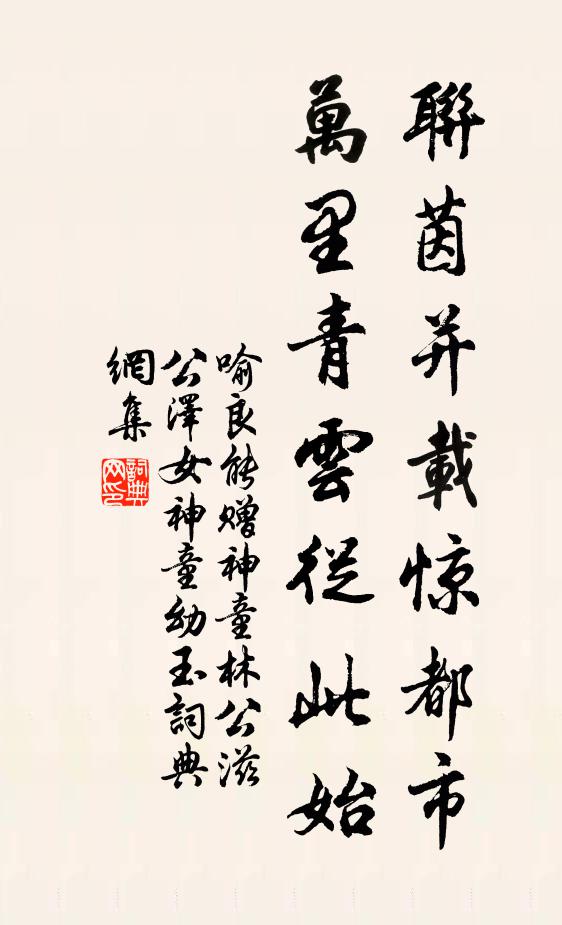 聯茵并載惊都市
萬里青雲從此始
喻良能赠神童林公滋
公澤女神童幼玉詞典
網集
詞典
网印